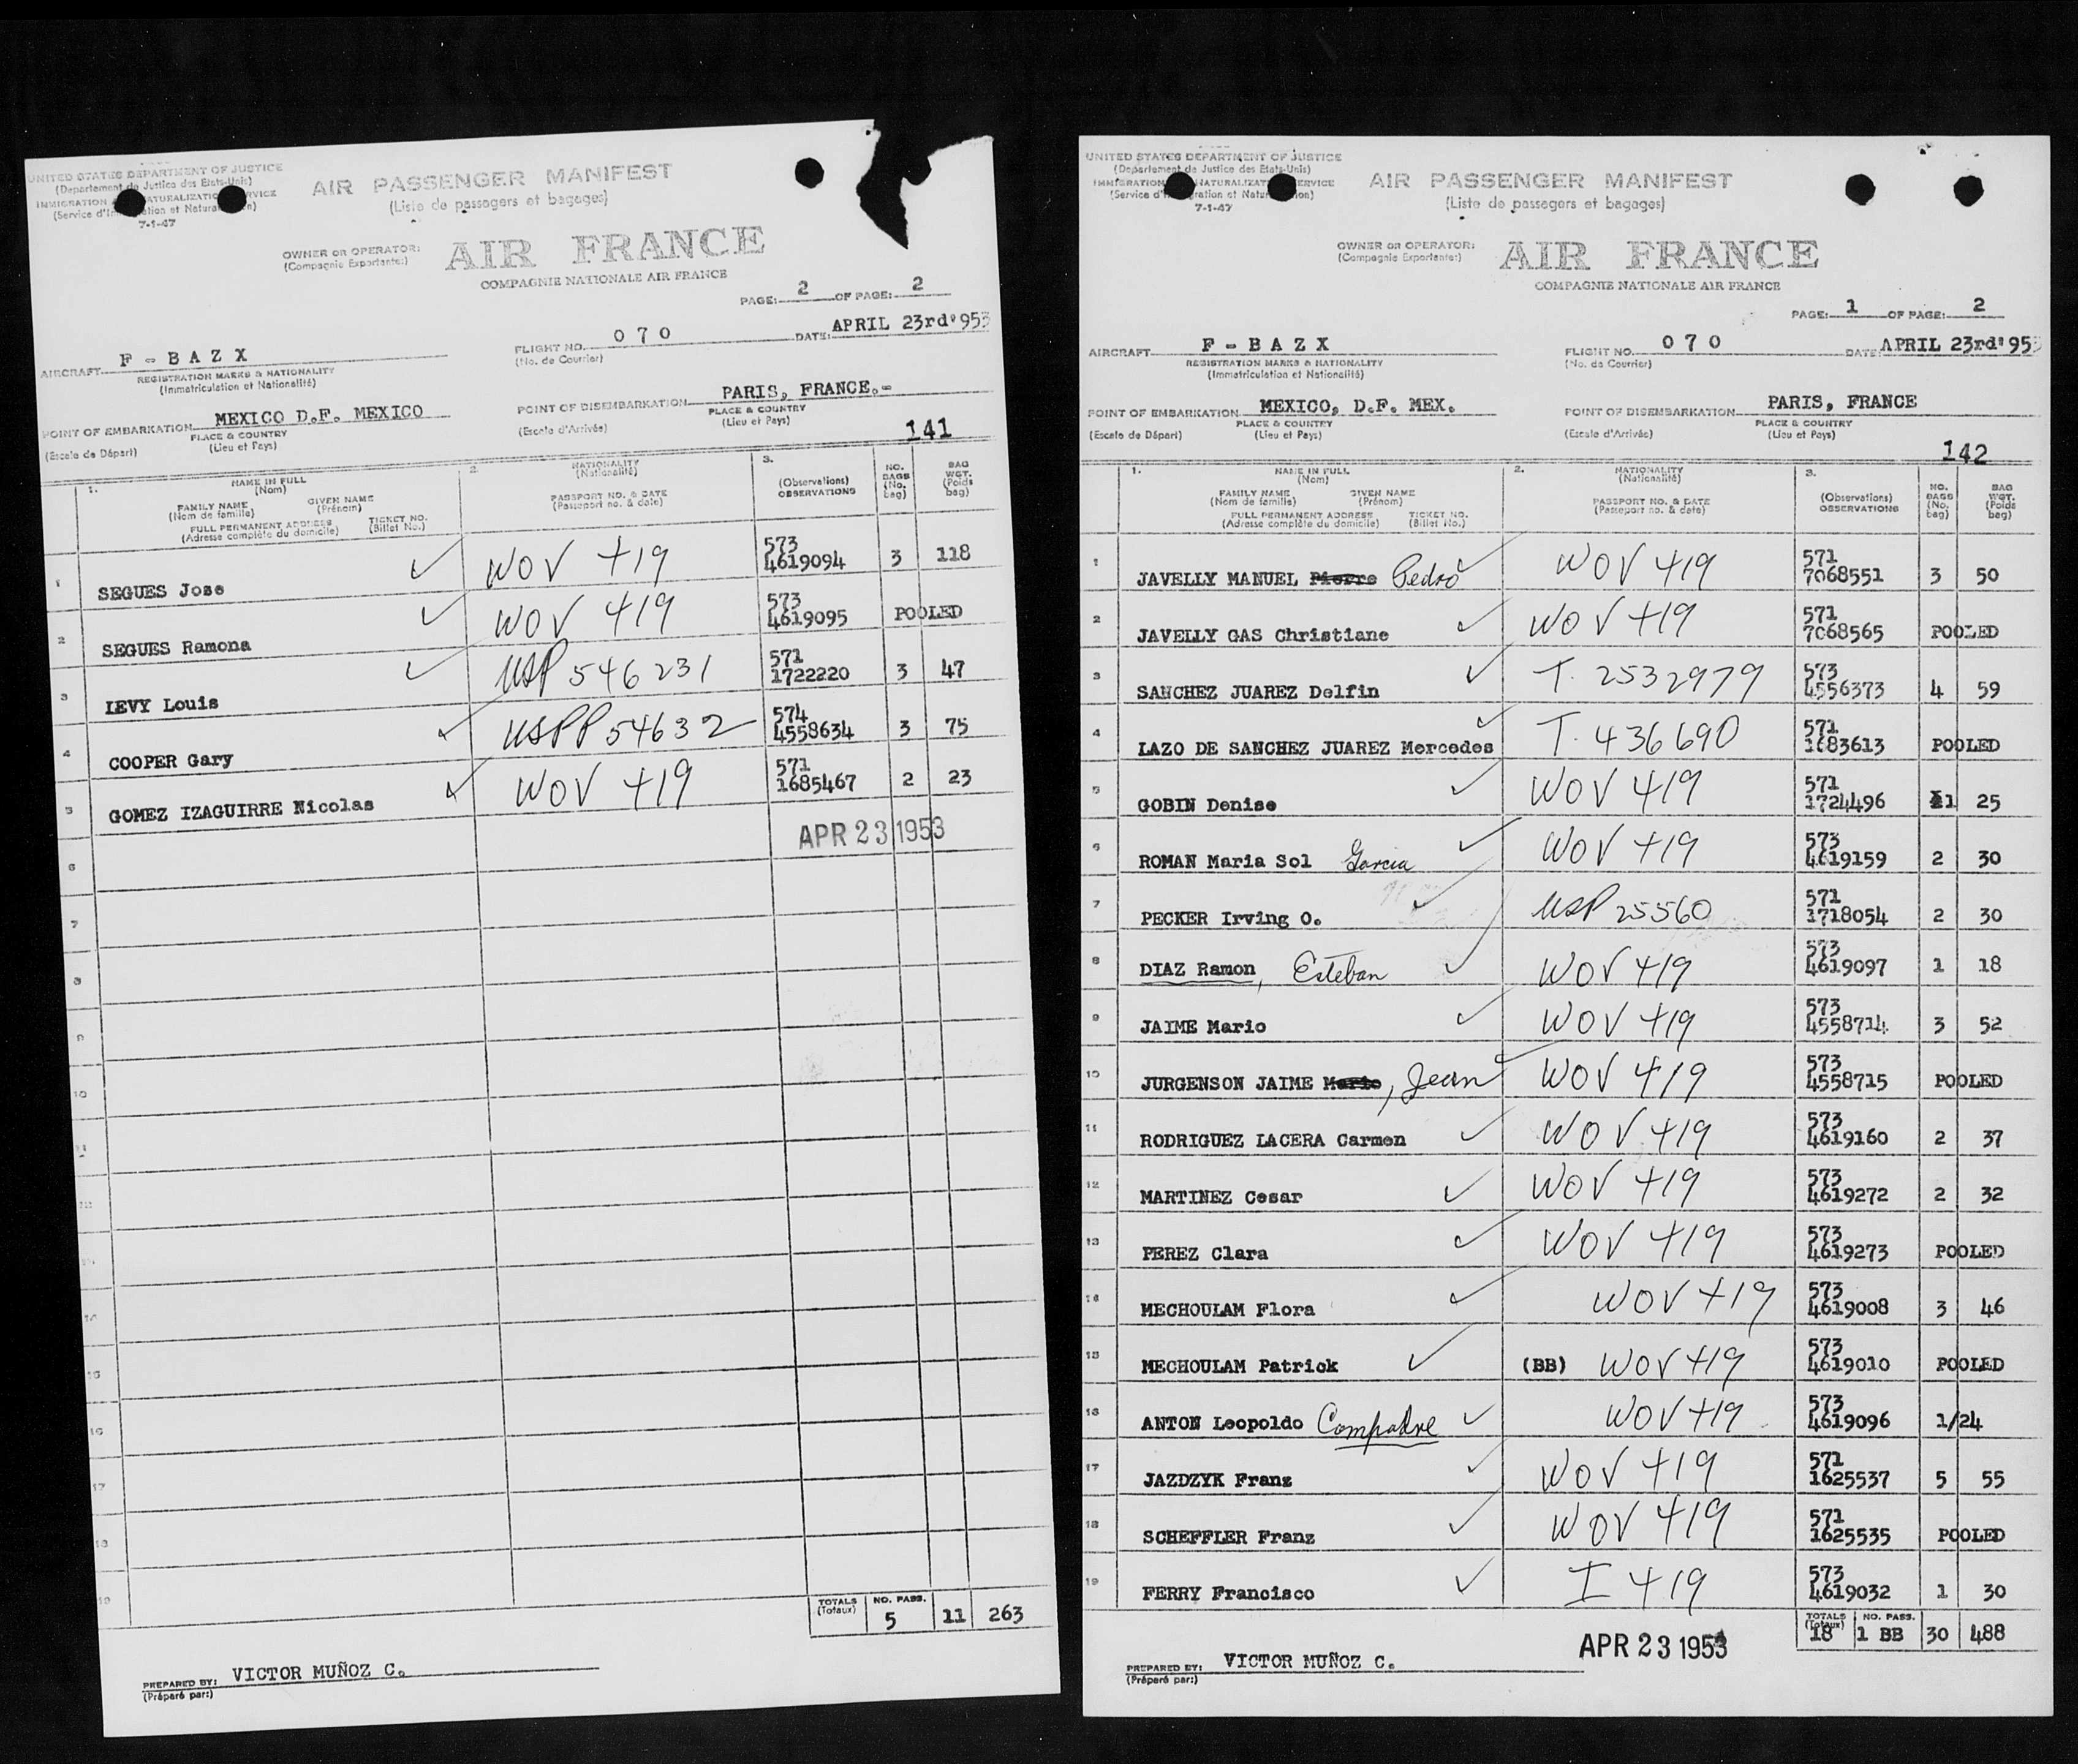 UNITED STATES DEPARTMENT OF JUSTICE
(Departement de Justice des Etats-Unis)
IMMIGRATION NATURALIZATION SERVICE
(Service d'Immigration et Naturalisation)
7-1-47
AIR PASSENGER MANIFEST
(Liste de passagers et bagages)
OWNER OR OPERATOR:
(Compagnie Exportante:)
AIR FRANCE
COMPAGNIE NATIONALE AIR FRANCE
PAGE: 2 OF PAGE: 2
AIRCRAFT F - B A Z X
REGISTRATION MARKS & NATIONALITY
(Immatriculation et Nationalité)
FLIGHT NO. 0 7 0
(No. de Courrier)
DATE: APRIL 23rd'953
POINT OF EMBARKATION MEXICO D.F. MEXICO
PLACE & COUNTRY
(Escale de Départ) (Lieu et Pays)
POINT OF DISEMBARKATION PARIS, FRANCE.-
PLACE & COUNTRY
(Escale d'Arrivée) (Lieu et Pays)
141
1. NAME IN FULL
(Nom)
FAMILY NAME GIVEN NAME
(Nom de famille) (Prénom)
FULL PERMANENT ADDRESS TICKET NO.
(Adresse complète du domicile) (Billet No.)
2. NATIONALITY
(Nationalité)
PASSPORT NO. & DATE
(Passeport no. & date)
3.
(Observations)
OBSERVATIONS
NO. BAGS (No. bag)
BAG WGT. (Poids bag)
1 SEGUES Jose WOV 419 573 4619094 3 118
2 SEGUES Ramona WOV 419 573 4619095 POOLED
3 LEVY Louis USP 546231 571 1722220 3 47
4 COOPER Gary USPP 54632 574 4558634 3 75
5 GOMEZ IZAGUIRRE Nicolas WOV 419 571 1685467 2 23
APR 23 1953
6
7
8
9
10
11
12
13
14
15
16
17
18
19
TOTALS (Totaux) NO. PASS. 5 11 263
PREPARED BY: VICTOR MUÑOZ C.
(Préparé par:)
UNITED STATES DEPARTMENT OF JUSTICE
(Departement de Justice des Etats-Unis)
IMMIGRATION NATURALIZATION SERVICE
(Service d'Immigration et Naturalisation)
7-1-47
AIR PASSENGER MANIFEST
(Liste de passagers et bagages)
OWNER OR OPERATOR:
(Compagnie Exportante:)
AIR FRANCE
COMPAGNIE NATIONALE AIR FRANCE
PAGE: 1 OF PAGE: 2
AIRCRAFT F - B A Z X
REGISTRATION MARKS & NATIONALITY
(Immatriculation et Nationalité)
FLIGHT NO. 0 7 0
(No. de Courrier)
DATE APRIL 23rd'953
POINT OF EMBARKATION MEXICO, D.F. MEX.
PLACE & COUNTRY
(Escale de Départ) (Lieu et Pays)
POINT OF DISEMBARKATION PARIS, FRANCE
PLACE & COUNTRY
(Escale d'Arrivée) (Lieu et Pays)
142
1. NAME IN FULL
(Nom)
FAMILY NAME GIVEN NAME
(Nom de famille) (Prénom)
FULL PERMANENT ADDRESS TICKET NO.
(Adresse complète du domicile) (Billet No.)
2. NATIONALITY
(Nationalité)
PASSPORT NO. & DATE
(Passeport no. & date)
3.
(Observations)
OBSERVATIONS
NO. BAGS (No. bag)
BAG WGT. (Poids bag)
1 JAVELLY MANUEL Pierre Pedro WOV 419 571 7068551 3 50
2 JAVELLY GAS Christiane WOV 419 571 7068565 POOLED
3 SANCHEZ JUAREZ Delfin T. 2532979 573 4556373 4 59
4 LAZO DE SANCHEZ JUAREZ Mercedes T. 436690 571 1683613 POOLED
5 GOBIN Denise WOV 419 571 1724496 1 25
6 ROMAN Maria Sol Garcia WOV 419 573 4619159 2 30
7 PECKER Irving O. USP 25560 571 1718054 2 30
8 DIAZ Ramon, Esteban WOV 419 573 4619097 1 18
9 JAIME Mario WOV 419 573 4558714 3 52
10 JURGENSON JAIME Mario, Jean WOV 419 573 4558715 POOLED
11 RODRIGUEZ LACERA Carmen WOV 419 573 4619160 2 37
12 MARTINEZ Cesar WOV 419 573 4619272 2 32
13 PEREZ Clara WOV 419 573 4619273 POOLED
14 MECHOULAM Flora WOV 419 573 4619008 3 46
15 MECHOULAM Patrick (BB) WOV 419 573 4619010 POOLED
16 ANTON Leopoldo Compadre WOV 419 573 4619096 1/24
17 JAZDZYK Franz WOV 419 571 1625537 5 55
18 SCHEFFLER Franz WOV 419 571 1625535 POOLED
19 FERRY Francisco I 419 573 4619032 1 30
TOTALS (Totaux) 18 NO. PASS. 1 BB 30 488
APR 23 1953
PREPARED BY: VICTOR MUÑOZ C.
(Préparé par:)